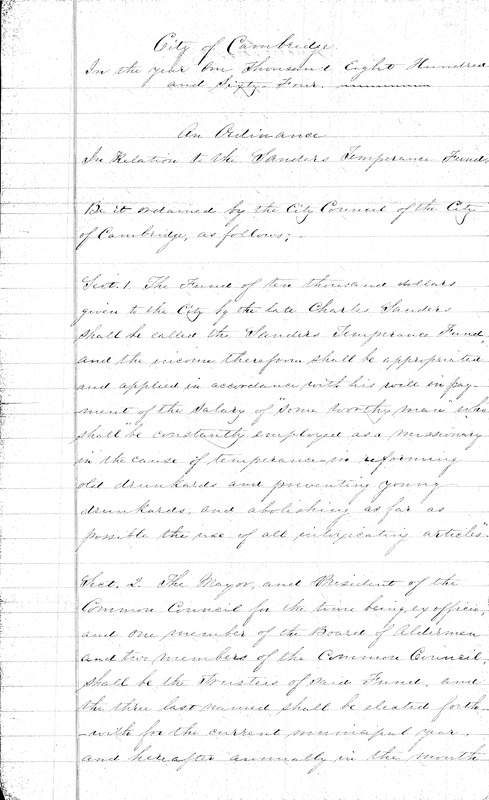 City of Cambridge.
In the year One Thousand Eight Hundred
and Sixty Four.
An Ordinance
In Relation to the Sanders Temperance Fund.
Be it ordained by the City Council of the City
of Cambridge, as follows;
Sect. 1. The Fund of ten thousand dollars
given to the City by the late Charles Sanders
shall be called the Sanders Temperance Fund,
and the income therefrom shall be appropriated
and applied in accordance with his will in pay-
ment of the salary of "some worthy man" who
shall be constantly employed as a missionary
in the cause of temperance in reforming
old drunkards and preventing young
drunkards, and abolishing as far as
possible the use of all intoxicating articles".
Sect. 2. The Mayor, and President of the
Common Council for the time being, ex officio,
and one member of the Board of Aldermen
and two members of the Common Council,
shall be the Trustees of said Fund, and
the three last named shall be elected forth-
-with for the current municipal year,
and hereafter annually in the month